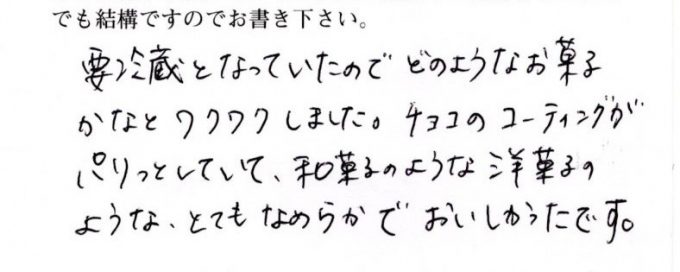 でも結構ですのでお書き下さい。
要冷蔵となっていたので どのようなお菓子
かなと ワクワクしました。チョコのコーティングが
パリっとしていて、和菓子のような洋菓子の
ような、とてもなめらかで おいしかったです。